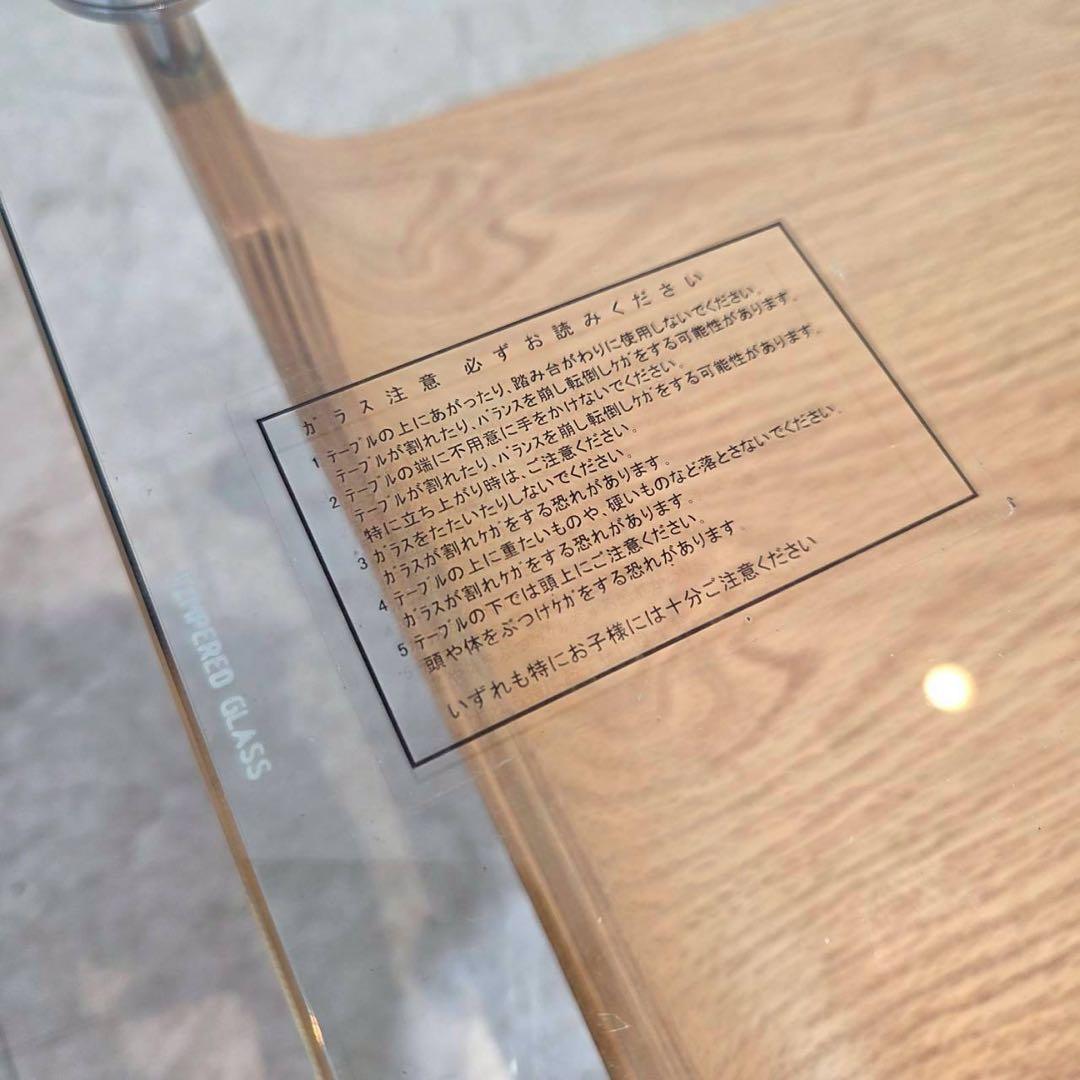 ガラス注意 必ずお読みください
1 テーブルの上にあがったり、踏み台がわりに使用しないでください。
テーブルが割れたり、バランスを崩し転倒しケガをする可能性があります。
2 テーブルの端に不用意に手をかけないでください。
テーブルが割れたり、バランスを崩し転倒しケガをする可能性があります。
特に立ち上がり時は、ご注意ください。
3 ガラスをたたいたりしないでください。
ガラスが割れケガをする恐れがあります。
4 テーブルの上に重たいものや、硬いものなど落とさないでください。
ガラスが割れケガをする恐れがあります。
5 テーブルの下では頭上にご注意ください。
頭や体をぶつけケガをする恐れがあります
いずれも特にお子様には十分ご注意ください
TEMPERED GLASS